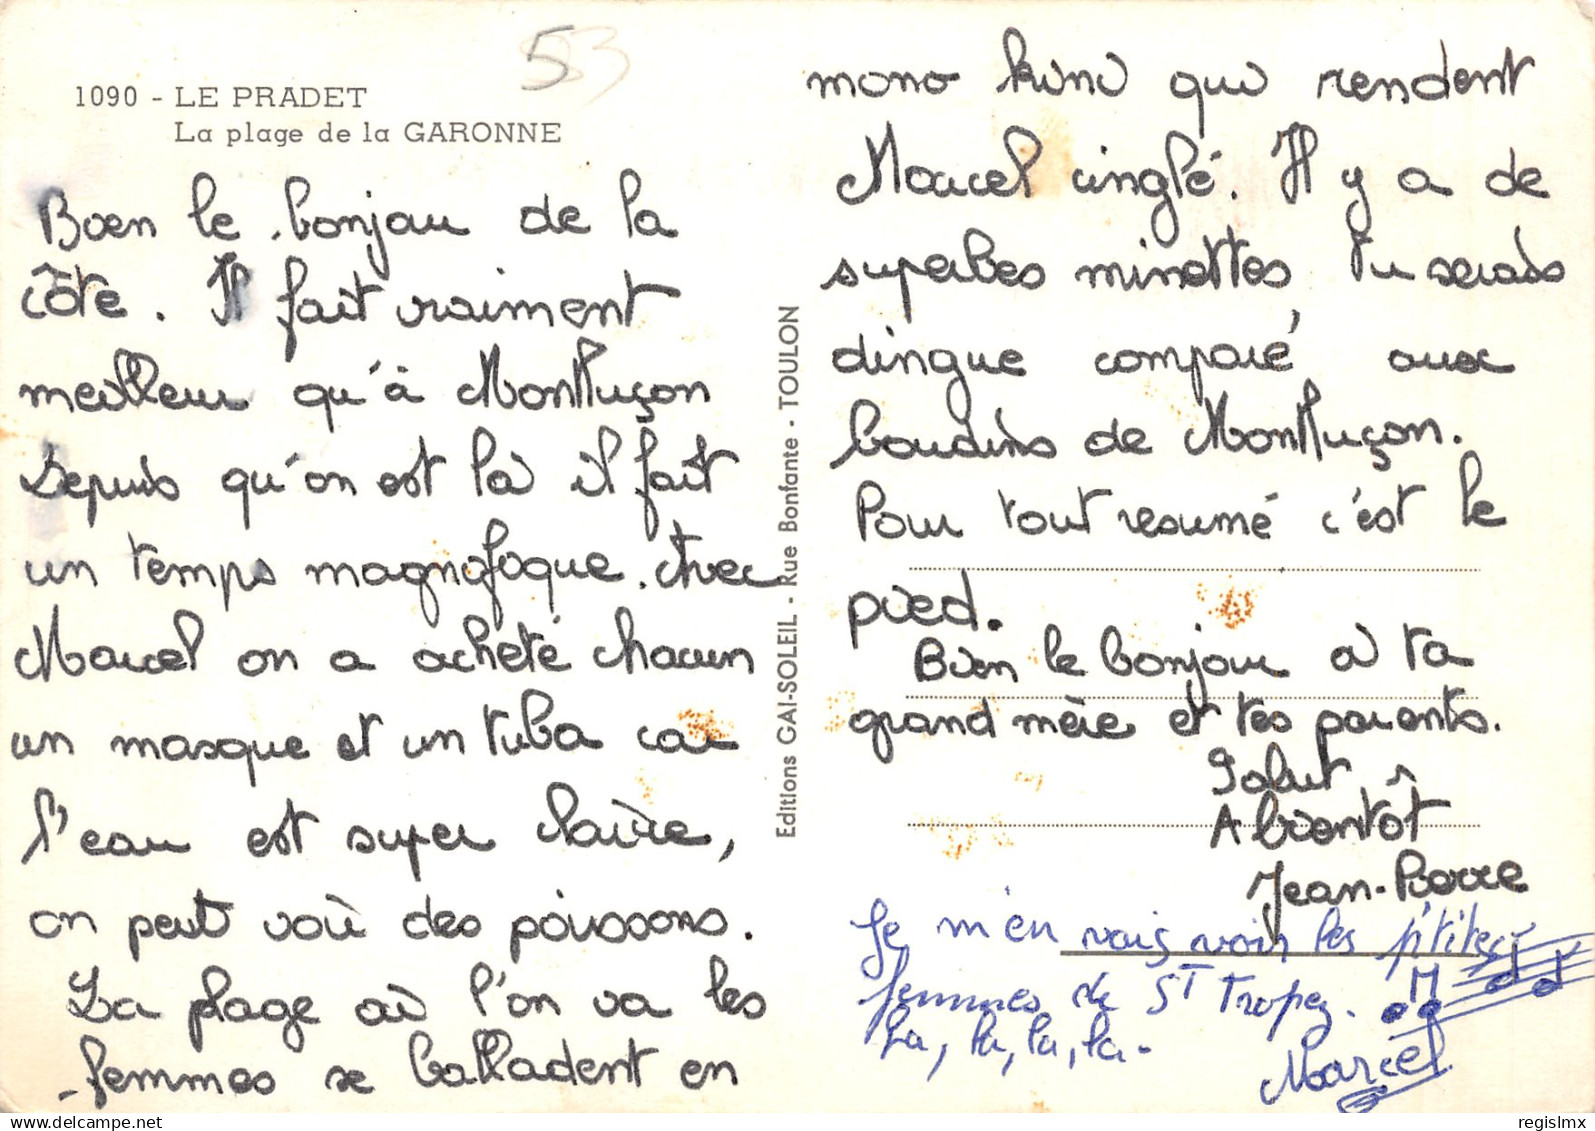 53
1090 - LE PRADET
La plage de la GARONNE
Bien le bonjour de la
côte. Il fait vraiment
meilleur qu'à Montluçon
Depuis qu'on est là il fait
un temps magnofoque. Avec
Marcel on a acheté chacun
un masque et un tuba car
l'eau est super claire,
on peut voir des poissons.
La plage où l'on va les
femmes se balladent en
mono kini qui rendent
Marcel cinglé. Il y a de
superbes minettes Tu serais
dingue comparé aux
boudins de Montluçon.
Pour tout resumé c'est le
pied.
Bien le bonjour à ta
grand mère et tes parents.
Salut
A bientôt
Jean-Pierre
Je m'en vais voir les p'tites
femmes de St Tropez.
La, la, la, la.
Marcel
Editions GAI-SOLEIL - Rue Bonfante - TOULON
delcampe.net
regislmx